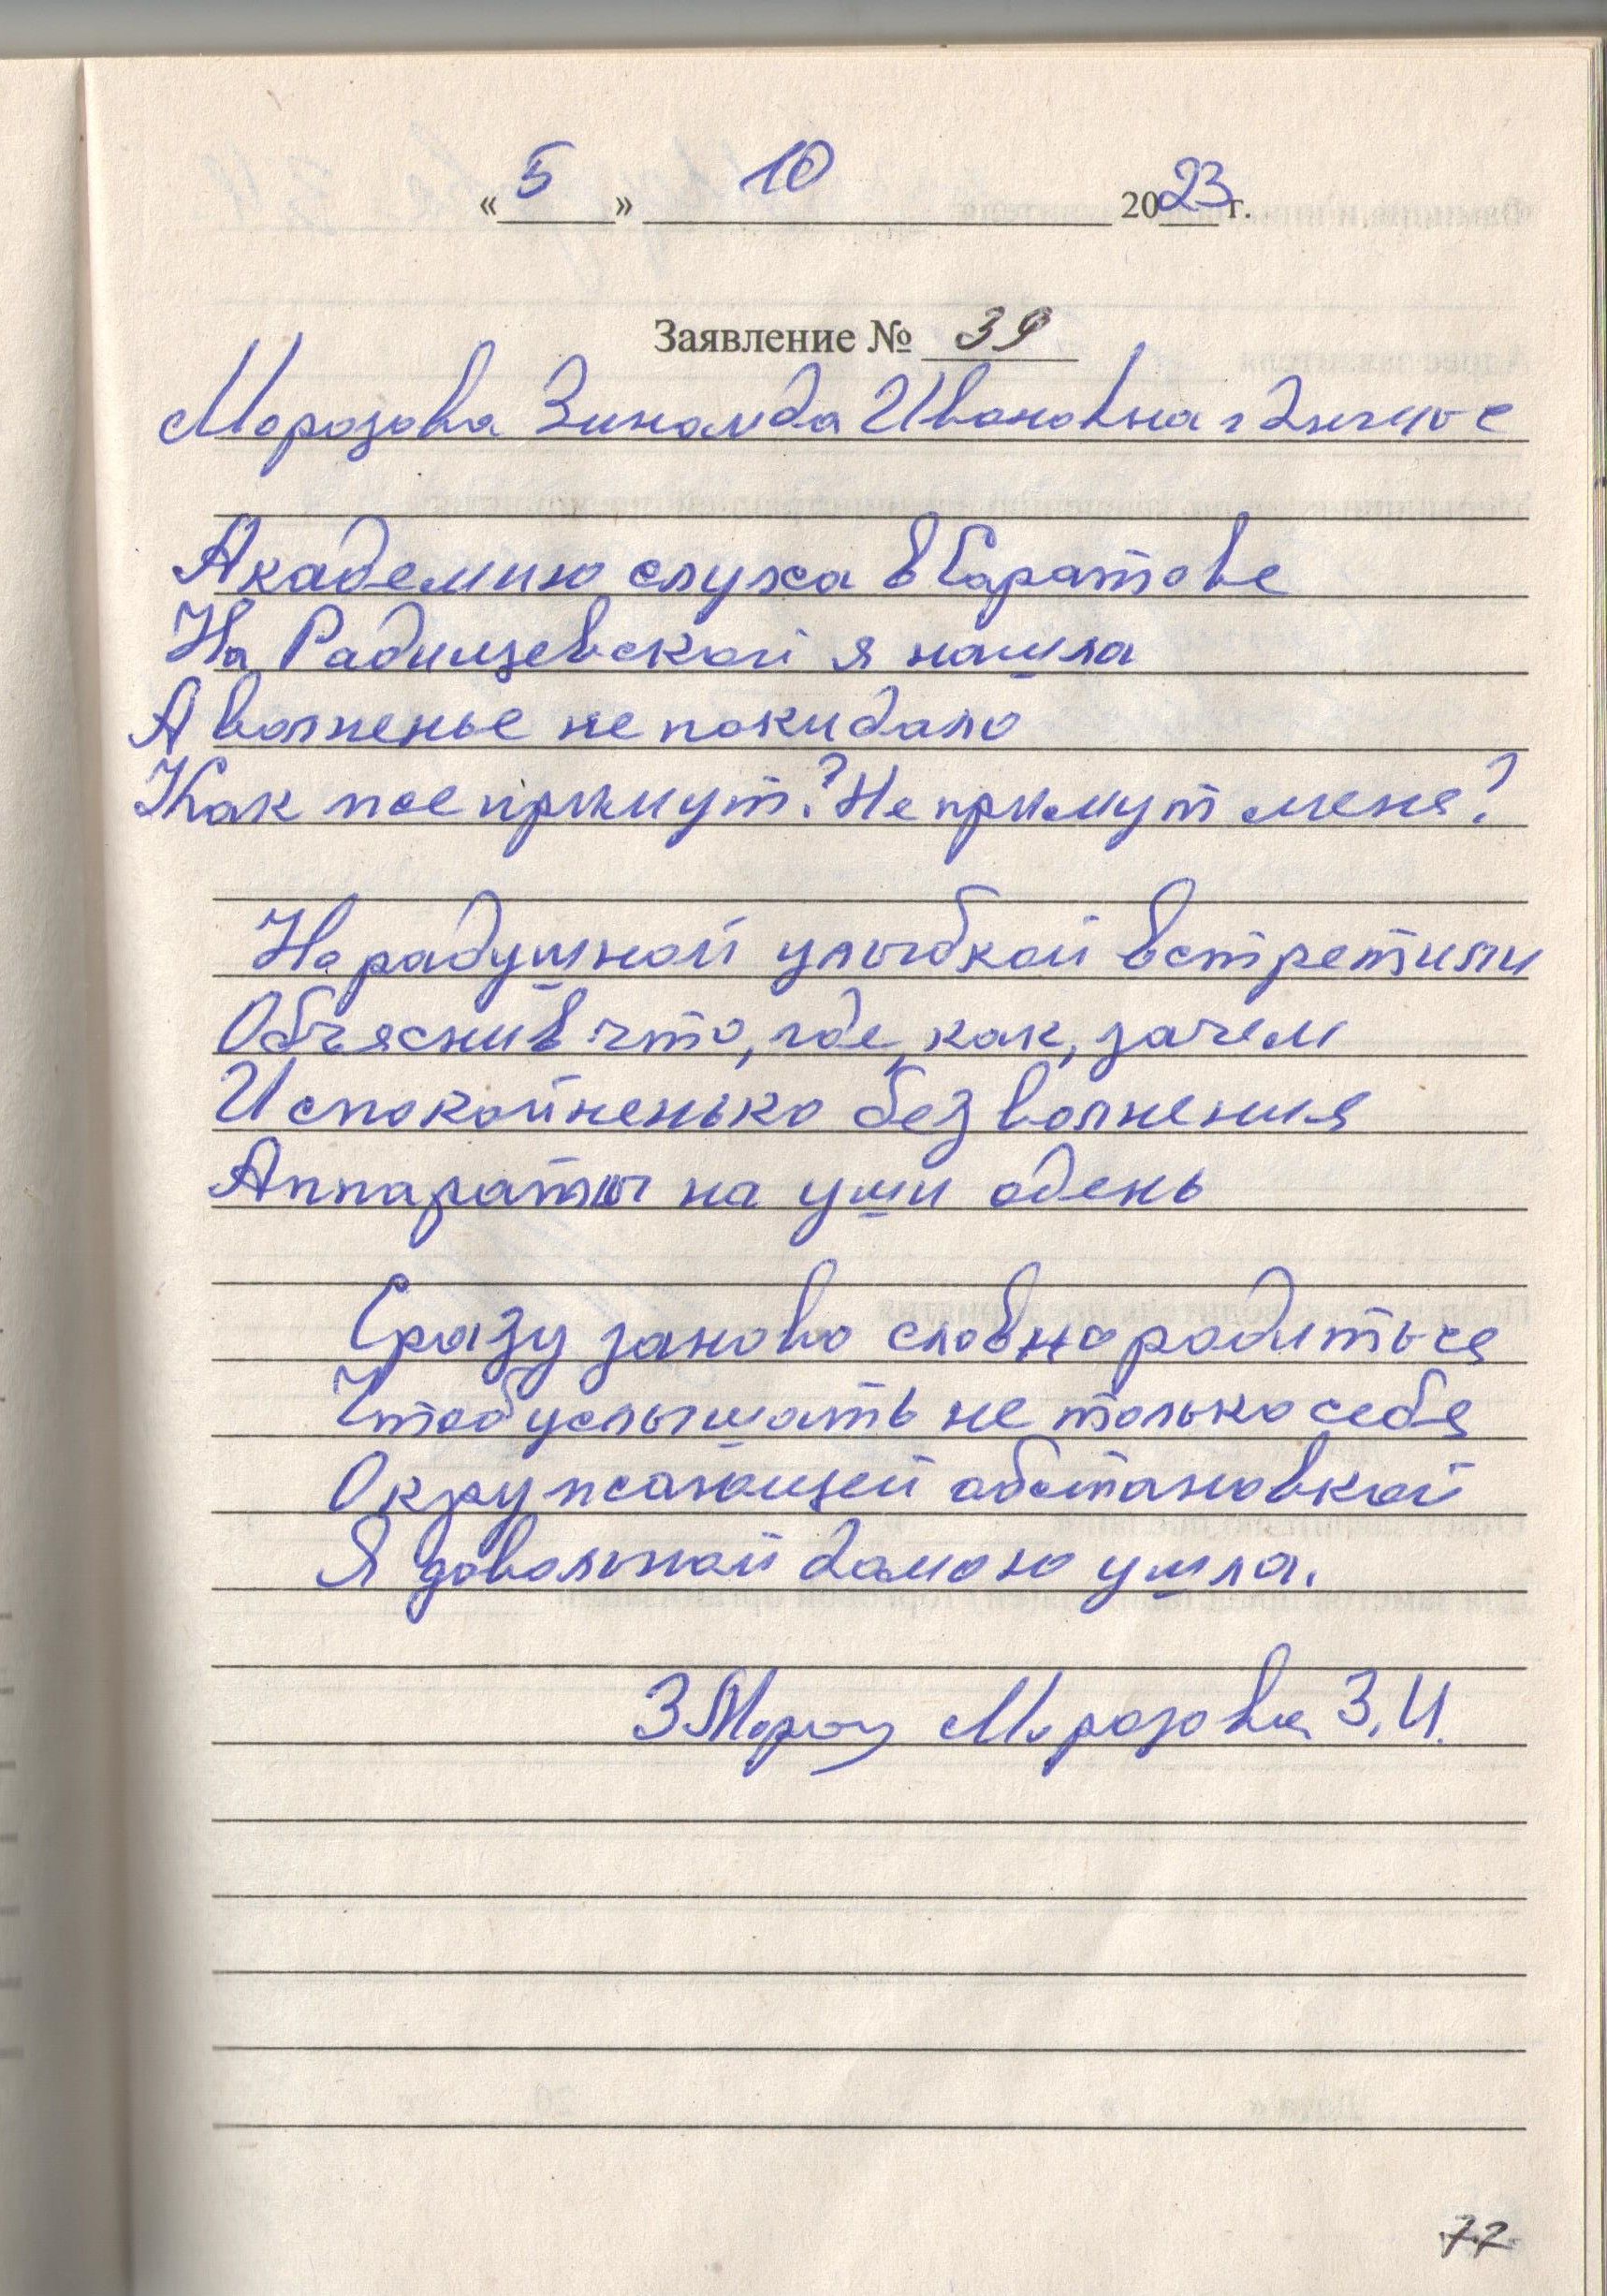 « 5 » 10 2023 г.
Заявление № 39
Морозова Зинаида Ивановна г Энгельс
Академию слуха в Саратове
На Радищевской я нашла
А волненье не покидало
Как же примут? Не примут меня?
Но радушной улыбкой встретили
Объяснив что, где, как, зачем
И спокойненько без волнения
Аппараты на уши одень
Сразу заново словно родиться
Чтоб услышать не только себя
Окружающей обстановкой
Я довольной дамою ушла.
ЗМороз Морозова З.И.
77